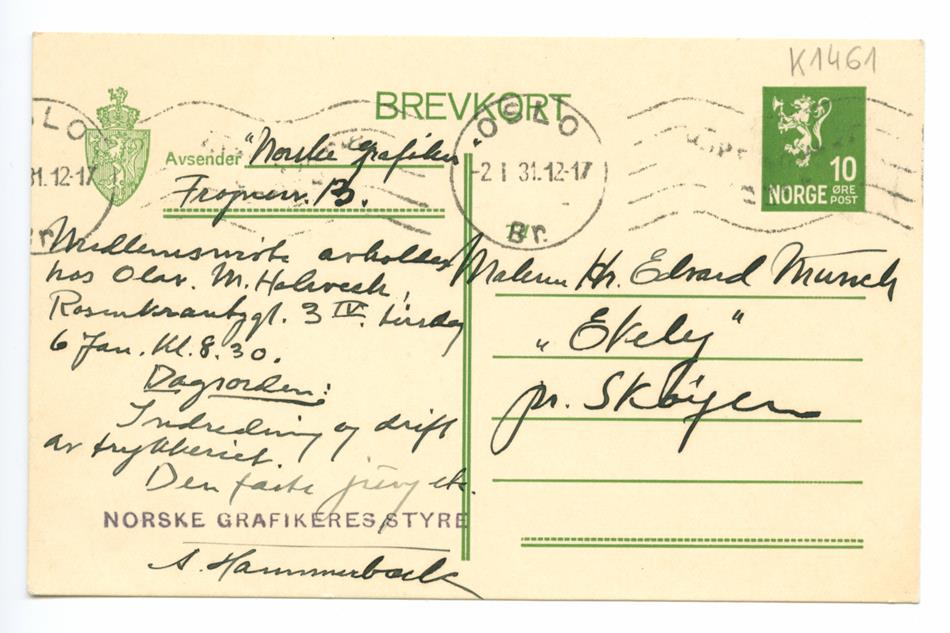 K1461
BREVKORT
OSLO
31.12-17
OSLO
-2 I 31.12-17
Br.
10
NORGE ØRE
POST
Avsender "Norske Grafikere"
Frognerv. 13.
Medlemsmöte avholdes
hos Olav. M. Holwech,
Rosenkrantzgt. 3 IV. tirsdag
6 Jan. Kl. 8.30.
Dagsorden:
Indredning og drift
av trykkeriet.
Den faste jury etc.
NORSKE GRAFIKERES STYRE
A. Hammerbeck
Maleren Hr. Edvard Munch
"Ekely"
pr. Skøyen